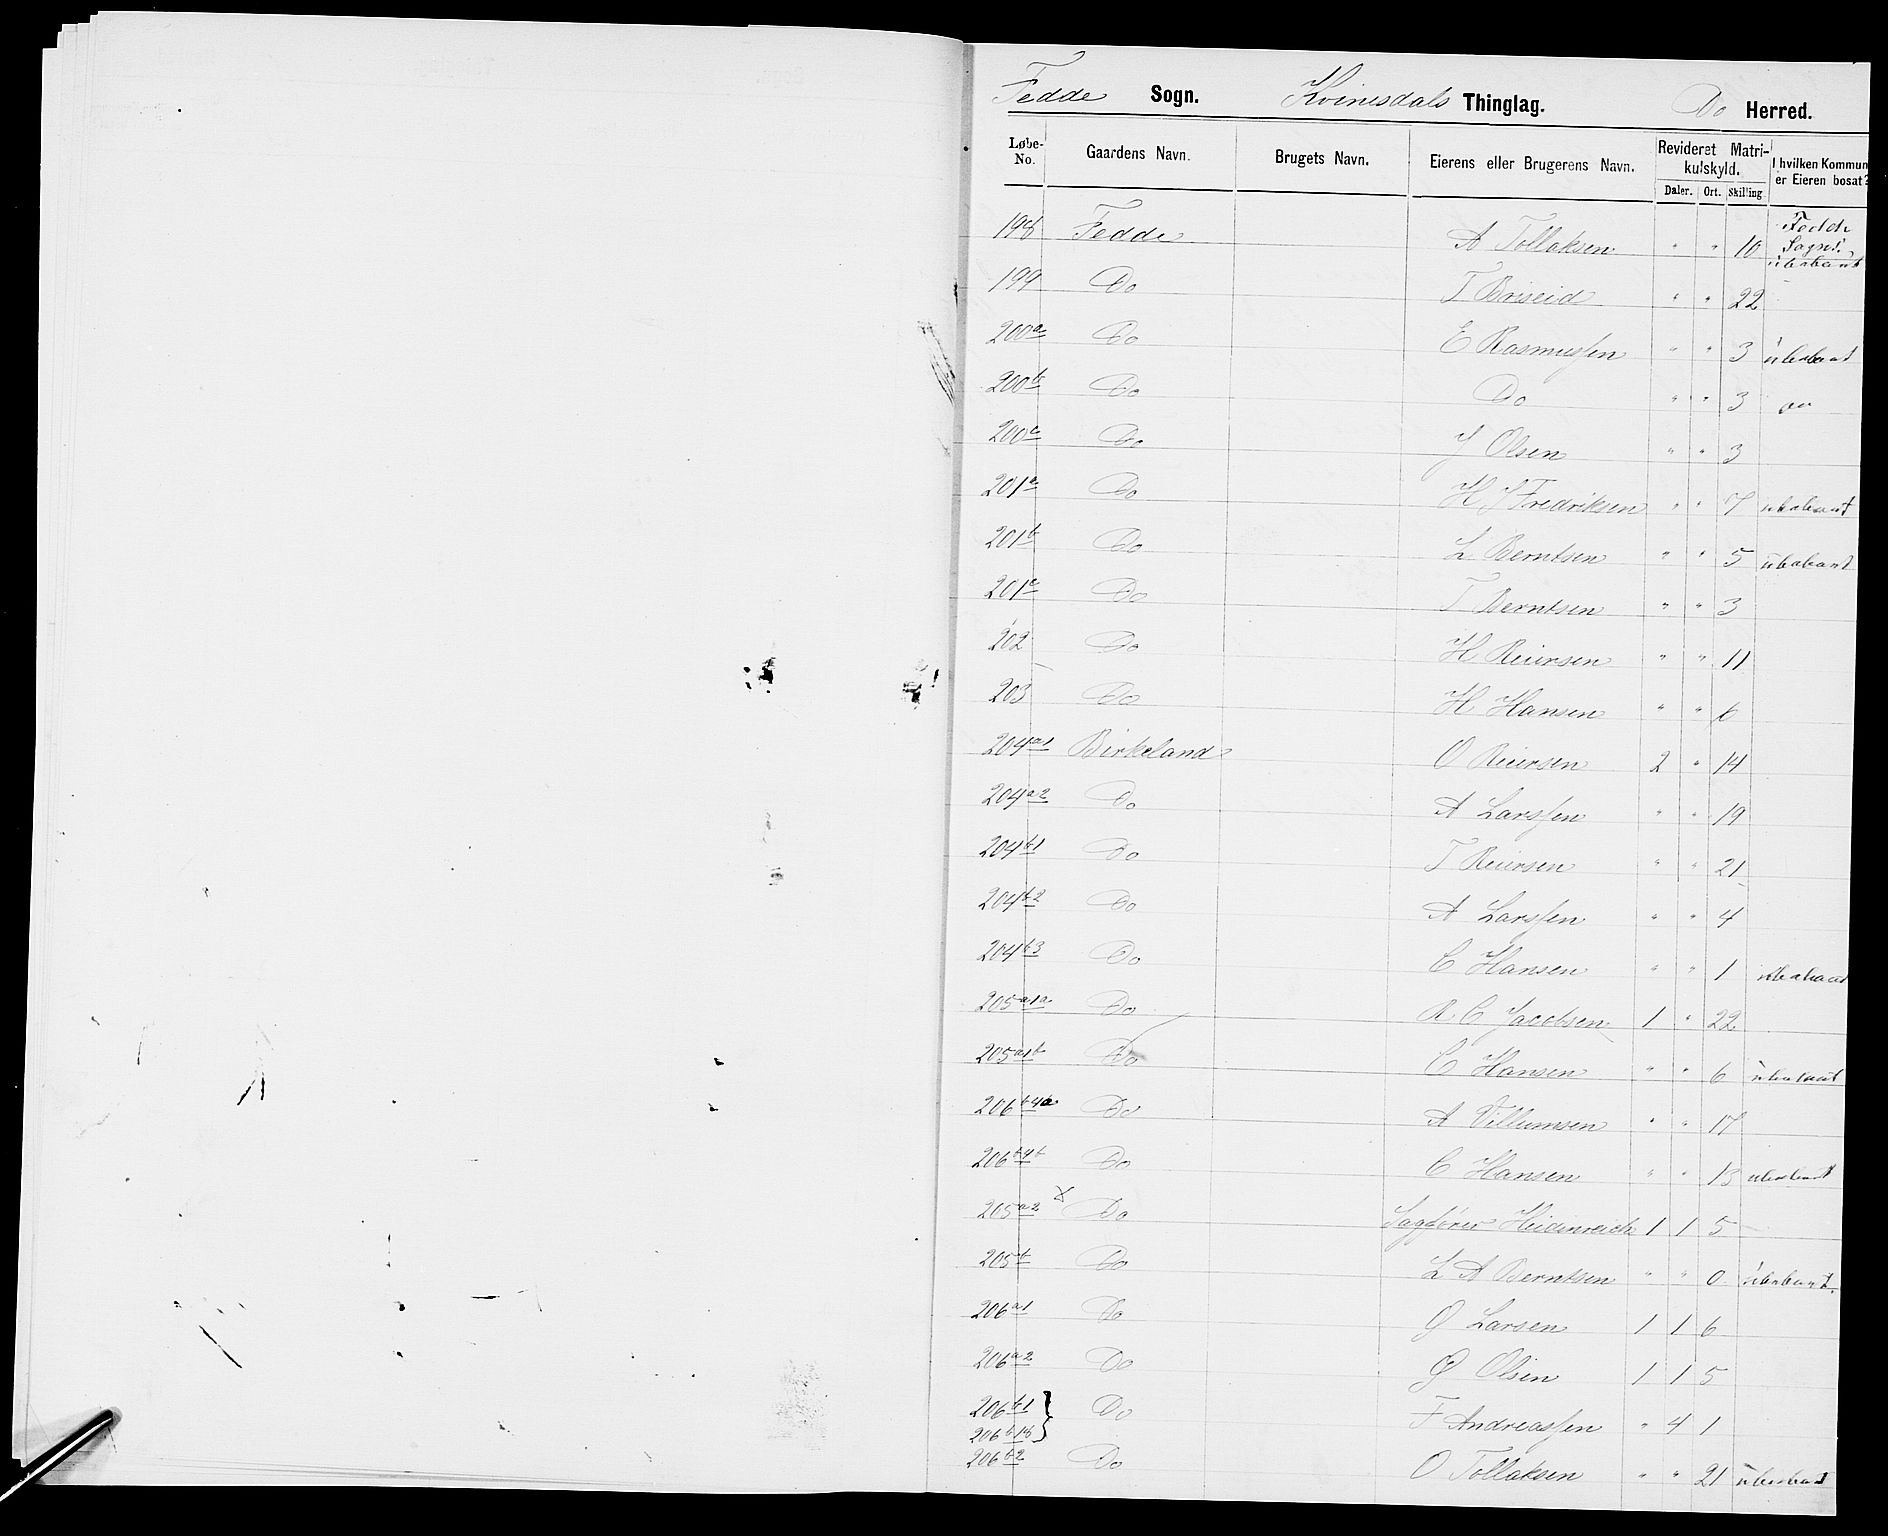 Fedde Sogn. Kvinesdals Thinglag. Do Herred.
Løbe-No. Gaardens Navn. Brugets Navn. Eierens eller Brugerens Navn. Revideret Matrikulskyld. I hvilken Kommun er Eieren bosat?
Daler. Ort. Skilling
198 Fedde A Tollaksen " " 10 Fedde Sogn ubeboet
199 Do T Briseid " " 22
200a Do E Rasmussen " " 3 ubeboet
200b Do Do " " 3 do
200c Do J Olsen " " 3
201a Do H J Fredriksen " " 7 ubeboet
201b Do L Berntsen " " 5 ubeboet
201c Do T Berntsen " " 3
202 Do H Reiersen " " 11
203 Do H Hansen " " 6
204a1 Birkeland O Reiersen 2 " 14
204a2 Do A Larssen " " 19
204b1 Do T Reiersen " " 21
204b2 Do A Larssen " " 4
204b3 Do C Hansen " " 1 ubeboet
205a1a Do R C Jacobsen 1 " 22
205a1b Do C Hansen " " 6 ubeboet
206b4a Do A Villumsen " " 17
206b4b Do C Hansen " " 13 ubeboet
205a2 x Do Sagfører Heidenreich 1 1 5
205b Do L A Berntsen " " 0 ubeboet.
206a1 Do O Larsen 1 1 6
206a2 Do G Olsen 1 1 5
206b1 } Do F Andreassen " 4 1
206b1b
206b2 Do O Tollaksen " " 21 ubeboet